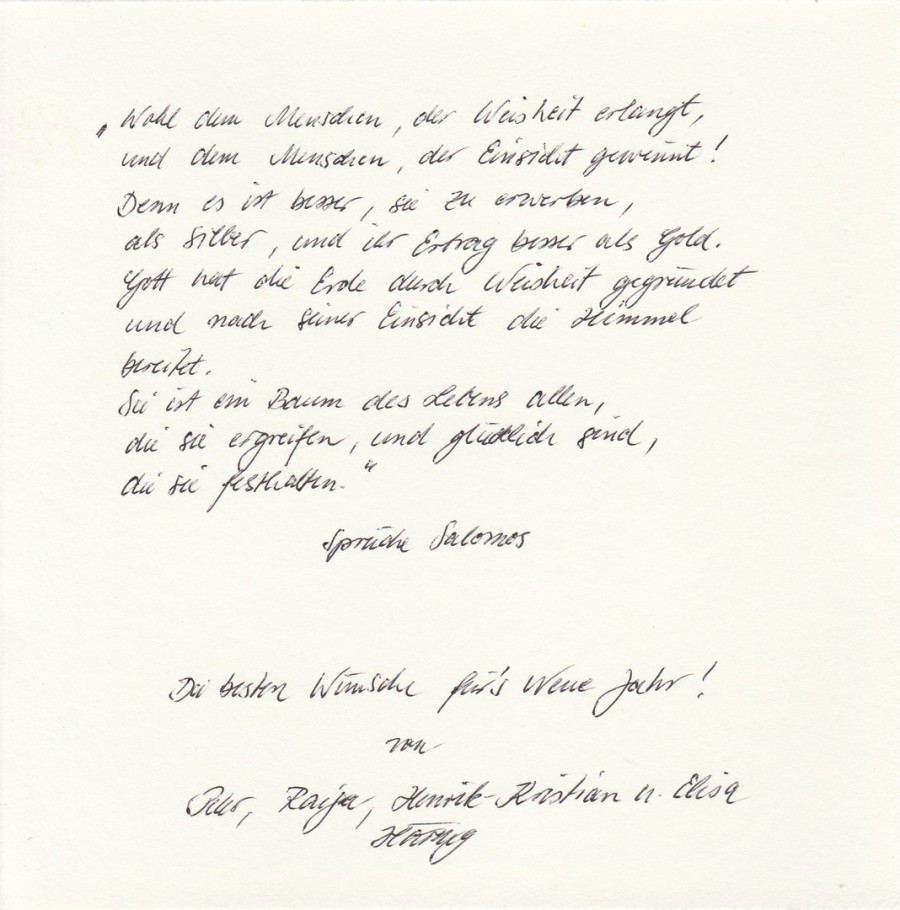 „Wohl dem Menschen, der Weisheit erlangt,
und dem Menschen, der Einsicht gewinnt!
Denn es ist besser, sie zu erwerben,
als Silber, und ihr Ertrag besser als Gold.
Gott hat die Erde durch Weisheit gegründet
und nach seiner Einsicht die Himmel
bereitet.
Sie ist ein Baum des Lebens allen,
die sie ergreifen, und glücklich sind,
die sie festhalten.“
Sprüche Salomos
Die besten Wünsche für's Neue Jahr!
von
Raija, Henrik-Kristian u. Elisa